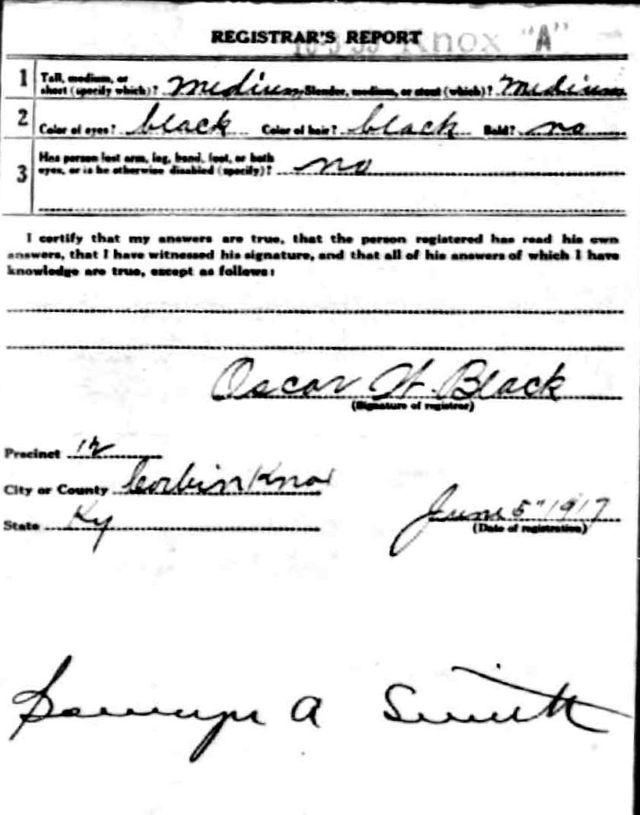 REGISTRAR'S REPORT
Knox "A"
1 Tall, medium, or short (specify which)? medium Slender, medium, or stout (which)? medium
2 Color of eyes? black Color of hair? black Bald? no
3 Has person lost arm, leg, hand, foot, or both eyes, or is he otherwise disabled (specify)? no
I certify that my answers are true, that the person registered has read his own
answers, that I have witnessed his signature, and that all of his answers of which I have
knowledge are true, except as follows:
Oscar W. Black
(Signature of registrar)
Precinct 12
City or County Corbin Knox
State Ky
June 5" 1917
(Date of registration)
A Smith